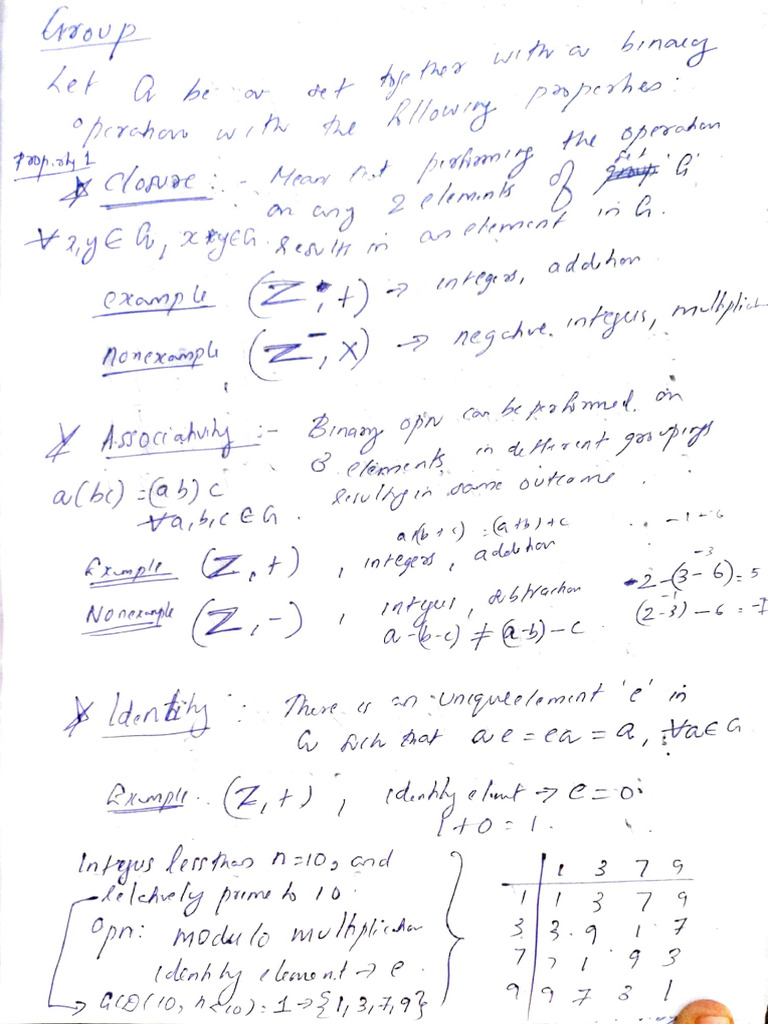 Group
Let G be a set together with a binary
operation with the following properties:
Property 1
* Closure :- Means that performing the operation
on any 2 elements of set 'G'
∀ x,y ∈ G, x*y ∈ G. results in an element in G.
example (Z, +) → integers, addition
nonexample (Z⁻, ×) → negative integers, multiplic
* Associativity :- Binary opn can be performed on
3 elements in different groupings
a(bc) = (ab)c resulting in same outcome.
∀a,b,c ∈ G.
a+(b+c) = (a+b)+c
Example (Z, +) , integers, addition
Nonexample (Z, -) , integers, subtraction
a-(b-c) ≠ (a-b)-c
-3
2-(3-6) = 5
-1
(2-3)-6 = -7
* Identity : There is an unique element 'e' in
G such that ae = ea = a, ∀a∈G
Example. (Z, +) , identity elemt → e = 0
1+0 = 1.
Integers less than n=10, and
relatively prime to 10.
Opn: modulo multiplication
identity element → e.
→ GCD(10, n<10) = 1 → {1,3,7,9}
1 3 7 9
1 1 3 7 9
3 3 9 1 7
7 7 1 9 3
9 9 7 3 1